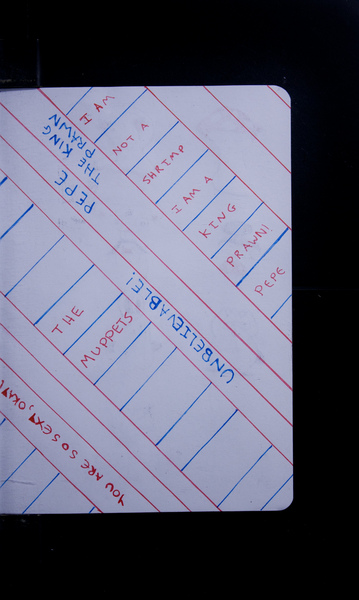 I AM
NOT A
SHRIMP
I AM A
KING
PRAWN!
PEPE
PEPE
THE KING
PRAWN
UNBELIEVABLE!
THE
MUPPETS
YOU ARE SO SEXY, OKAY!